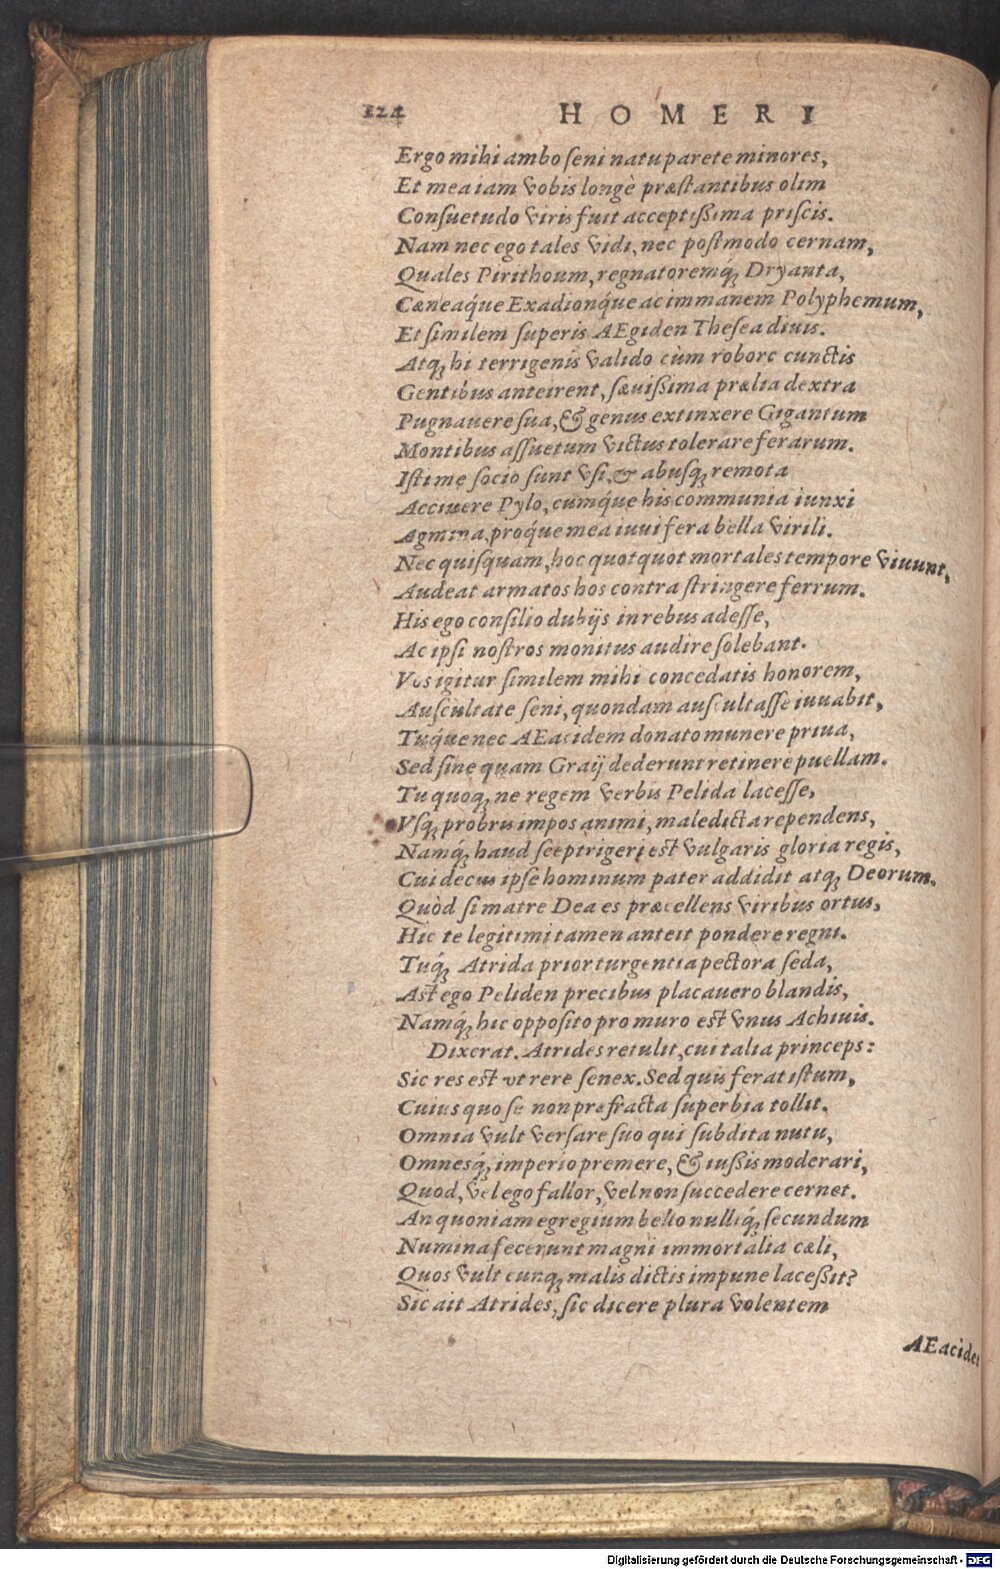 124 HOMERI
Ergo mihi ambo ſeni natu parete minores,
Et mea iam vobis longè præſtantibus olim
Conſuetudo viris fuit acceptiſsima priſcis.
Nam nec ego tales vidi, nec poſtmodo cernam,
Quales Pirithoum, regnatoremq́ꝫ Dryanta,
Cæneaq́ue Exadionq́ue ac immanem Polyphemum,
Et ſimilem ſuperis AEgiden Theſea diuis.
Atqꝫ hi terrigenis valido cùm robore cunctis
Gentibus anteirent, ſæuiſsima prælia dextra
Pugnauere ſua, & genus extinxere Gigantum
Montibus aſſuetum victus tolerare ferarum.
Iſti me ſocio ſunt vſi, & abuſqꝫ remota
Acciuere Pylo, cumq́ue his communia iunxi
Agmina, proq́ue mea iuui fera bella virili.
Nec quiſquam, hoc quotquot mortales tempore viuunt,
Audeat armatos hos contra ſtringere ferrum.
His ego conſilio dubijs in rebus adeſſe,
Ac ipſi noſtros monitus audire ſolebant.
Vos igitur ſimilem mihi concedatis honorem,
Auſcultate ſeni, quondam auſcultaſſe iuuabit,
Tuq́ue nec AEacidem donato munere priua,
Sed ſine quam Graij dederunt retinere puellam.
Tu quoqꝫ ne regem verbis Pelida laceſſe,
Vſqꝫ probris impos animi, maledicta rependens,
Namq́ꝫ haud ſceptrigeri eſt vulgaris gloria regis,
Cui decus ipſe hominum pater addidit atqꝫ Deorum.
Quòd ſi matre Dea es præcellens viribus ortus,
Hic te legitimi tamen anteit pondere regni.
Tuq́ꝫ Atrida prior turgentia pectora ſeda,
Aſt ego Peliden precibus placauero blandis,
Namq́ꝫ hic oppoſito pro muro eſt vnus Achiuis.
Dixerat. Atrides retulit, cui talia princeps:
Sic res eſt vt rere ſenex. Sed quis ferat iſtum,
Cuius quo ſe non præfracta ſuperbia tollit.
Omnia vult verſare ſuo qui ſubdita nutu,
Omnesq́ꝫ imperio premere, & iuſsis moderari,
Quod, vel ego fallor, vel non ſuccedere cernet.
An quoniam egregium bello nulliq́ꝫ ſecundum
Numina fecerunt magni immortalia cæli,
Quos vult cunqꝫ malis dictis impune laceſsit?
Sic ait Atrides, ſic dicere plura volentem
AEacides
Digitalisierung gefördert durch die Deutsche Forschungsgemeinschaft - DFG